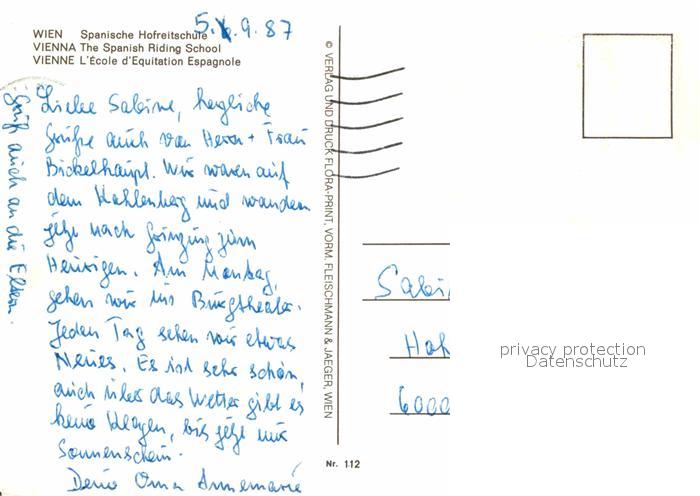 WIEN Spanische Hofreitschule
VIENNA The Spanish Riding School
VIENNE L'École d'Equitation Espagnole
5. 9. 87
Liebe Sabine, herzliche
Grüße auch von Herrn + Frau
Bickelhaupt. Wir waren auf
dem Kahlenberg und wandern
jetzt nach Grinzing zum
Heurigen. Am Montag
gehen wir ins Burgtheater.
Jeden Tag sehen wir etwas
Neues. Es ist sehr schön,
auch über das Wetter gibt es
kein Klagen, bis jetzt nur
Sonnenschein.
Deine Oma Annemarie
Grüß auch an die Eltern.
© VERLAG UND DRUCK FLORA-PRINT, VORM. FLEISCHMANN & JAEGER, WIEN
Nr. 112
Sabi
Hoh
6000
privacy protection
Datenschutz